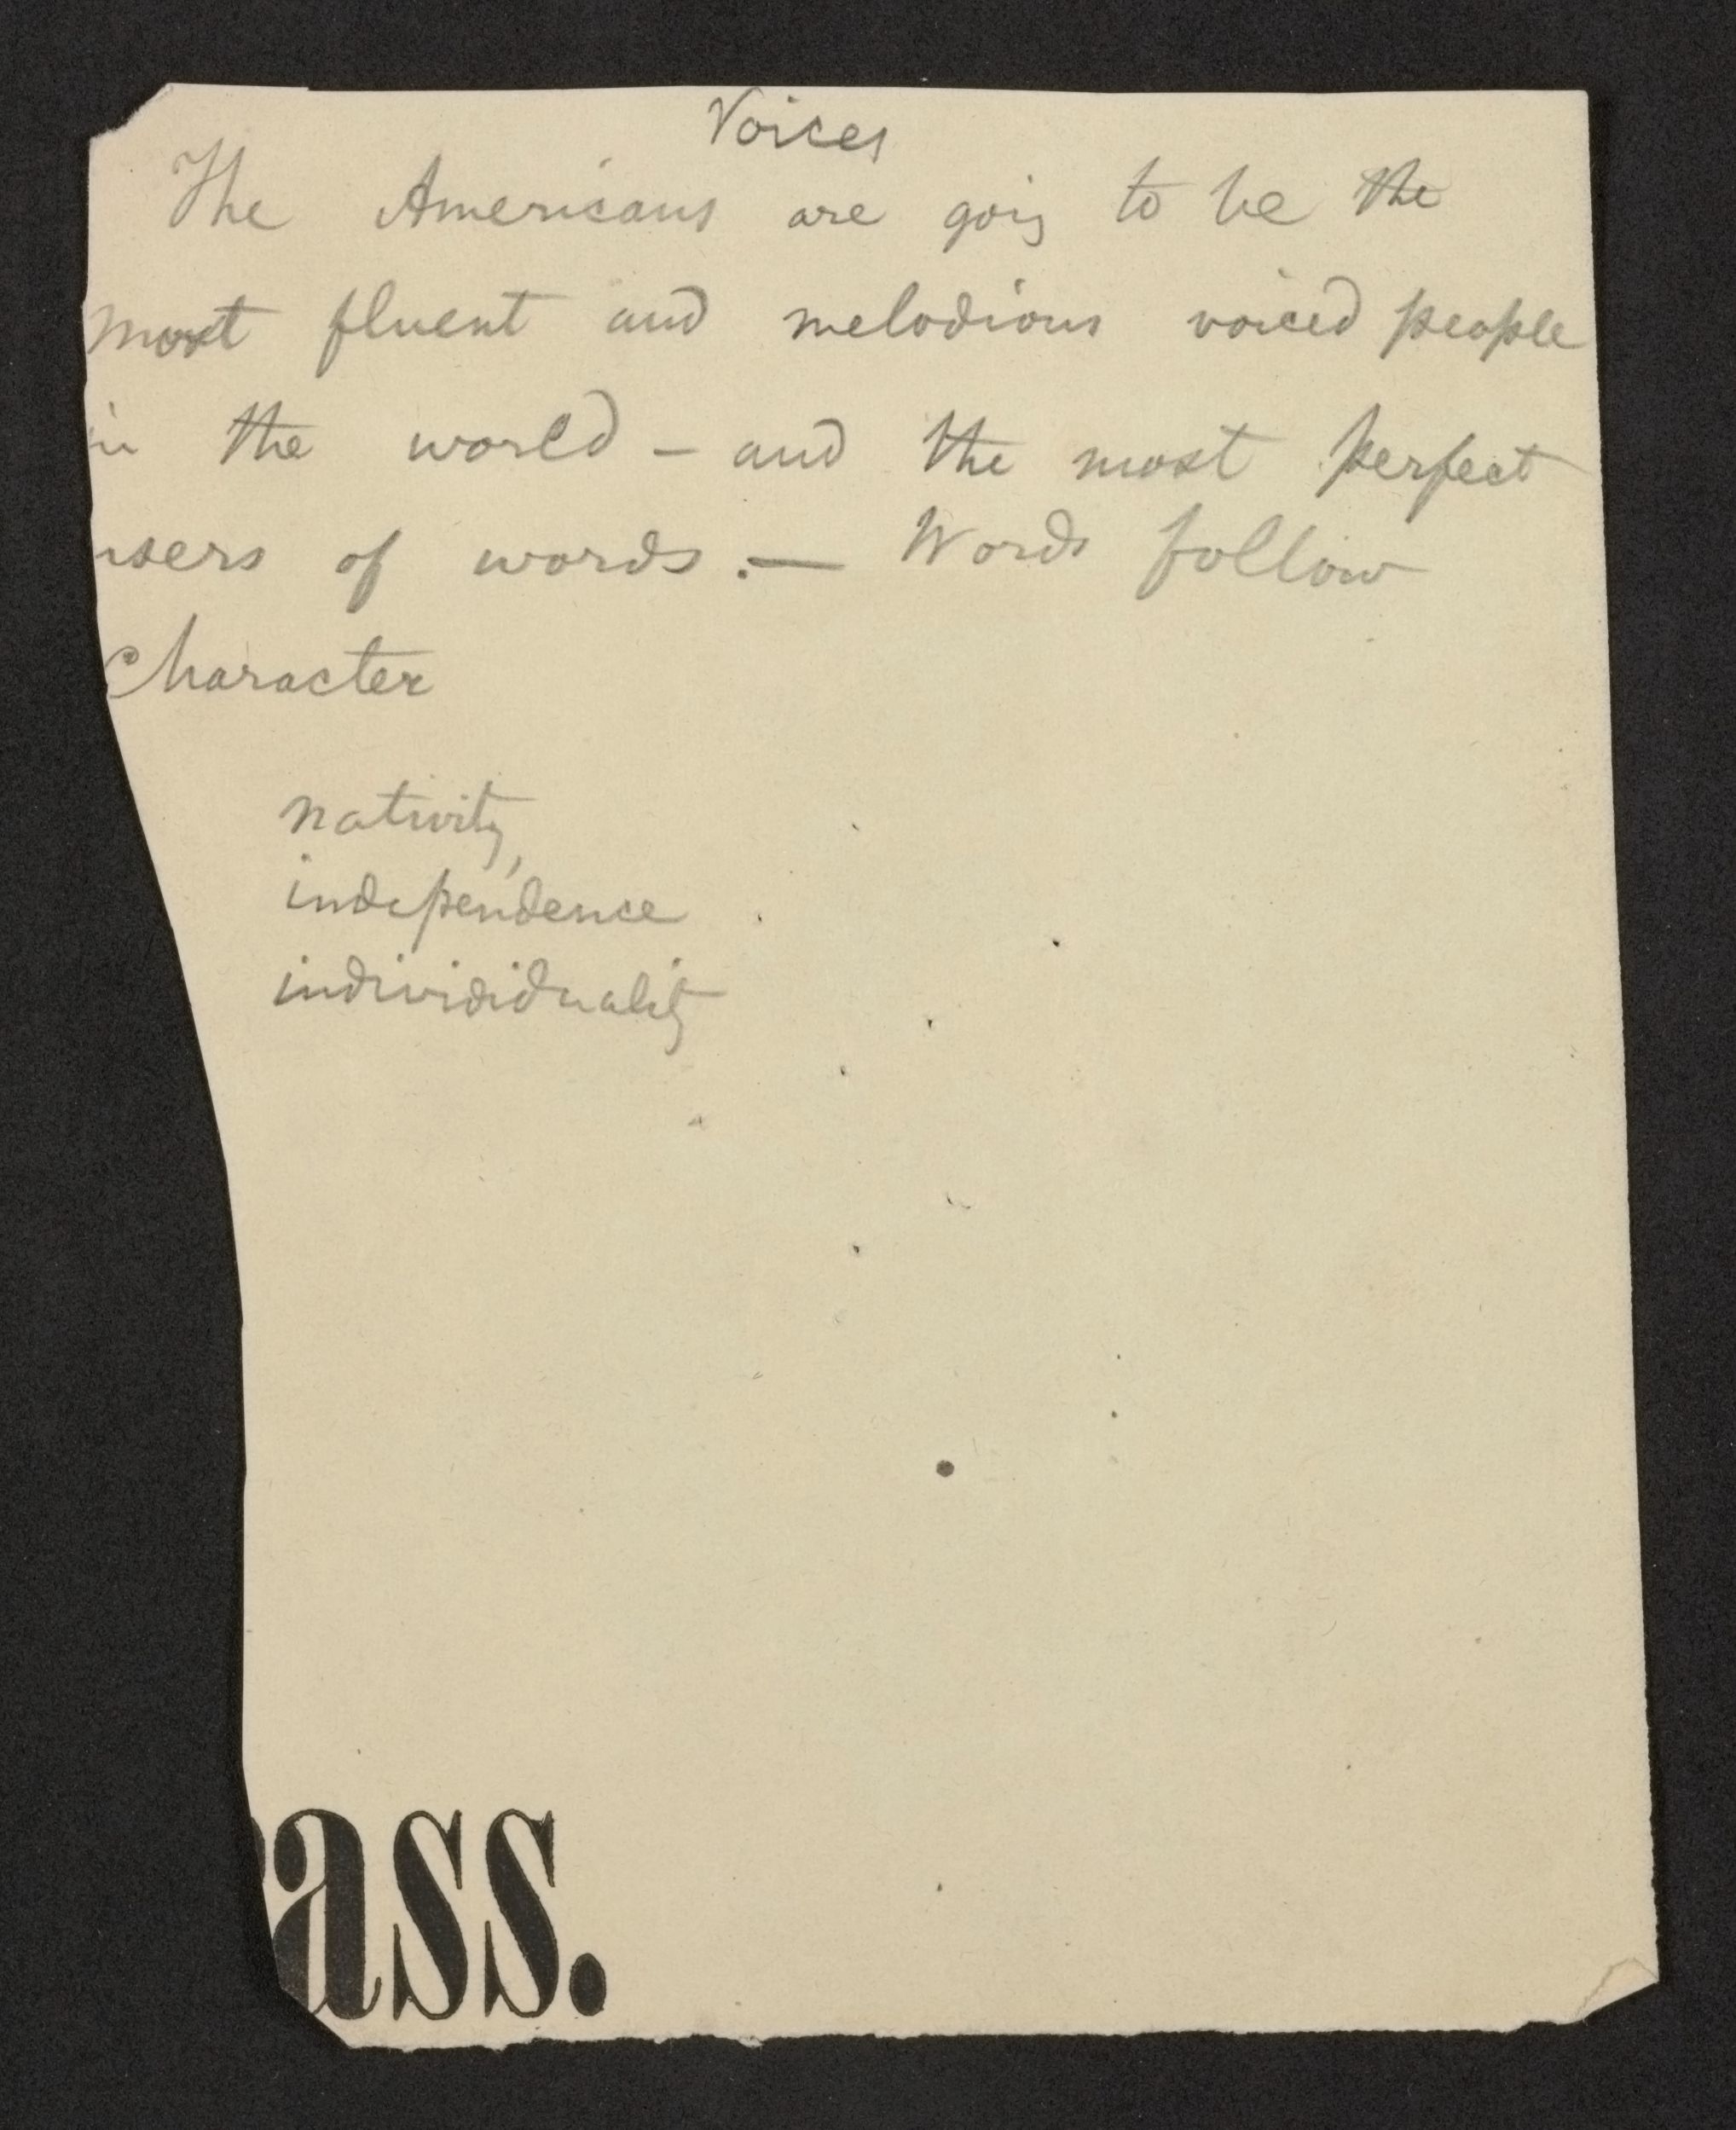 Voices
The Americans are going to be the
most fluent and melodious voiced people
in the world – and the most perfect
users of words. — Words follow
character
nativity,
independence
individiduality
ass.